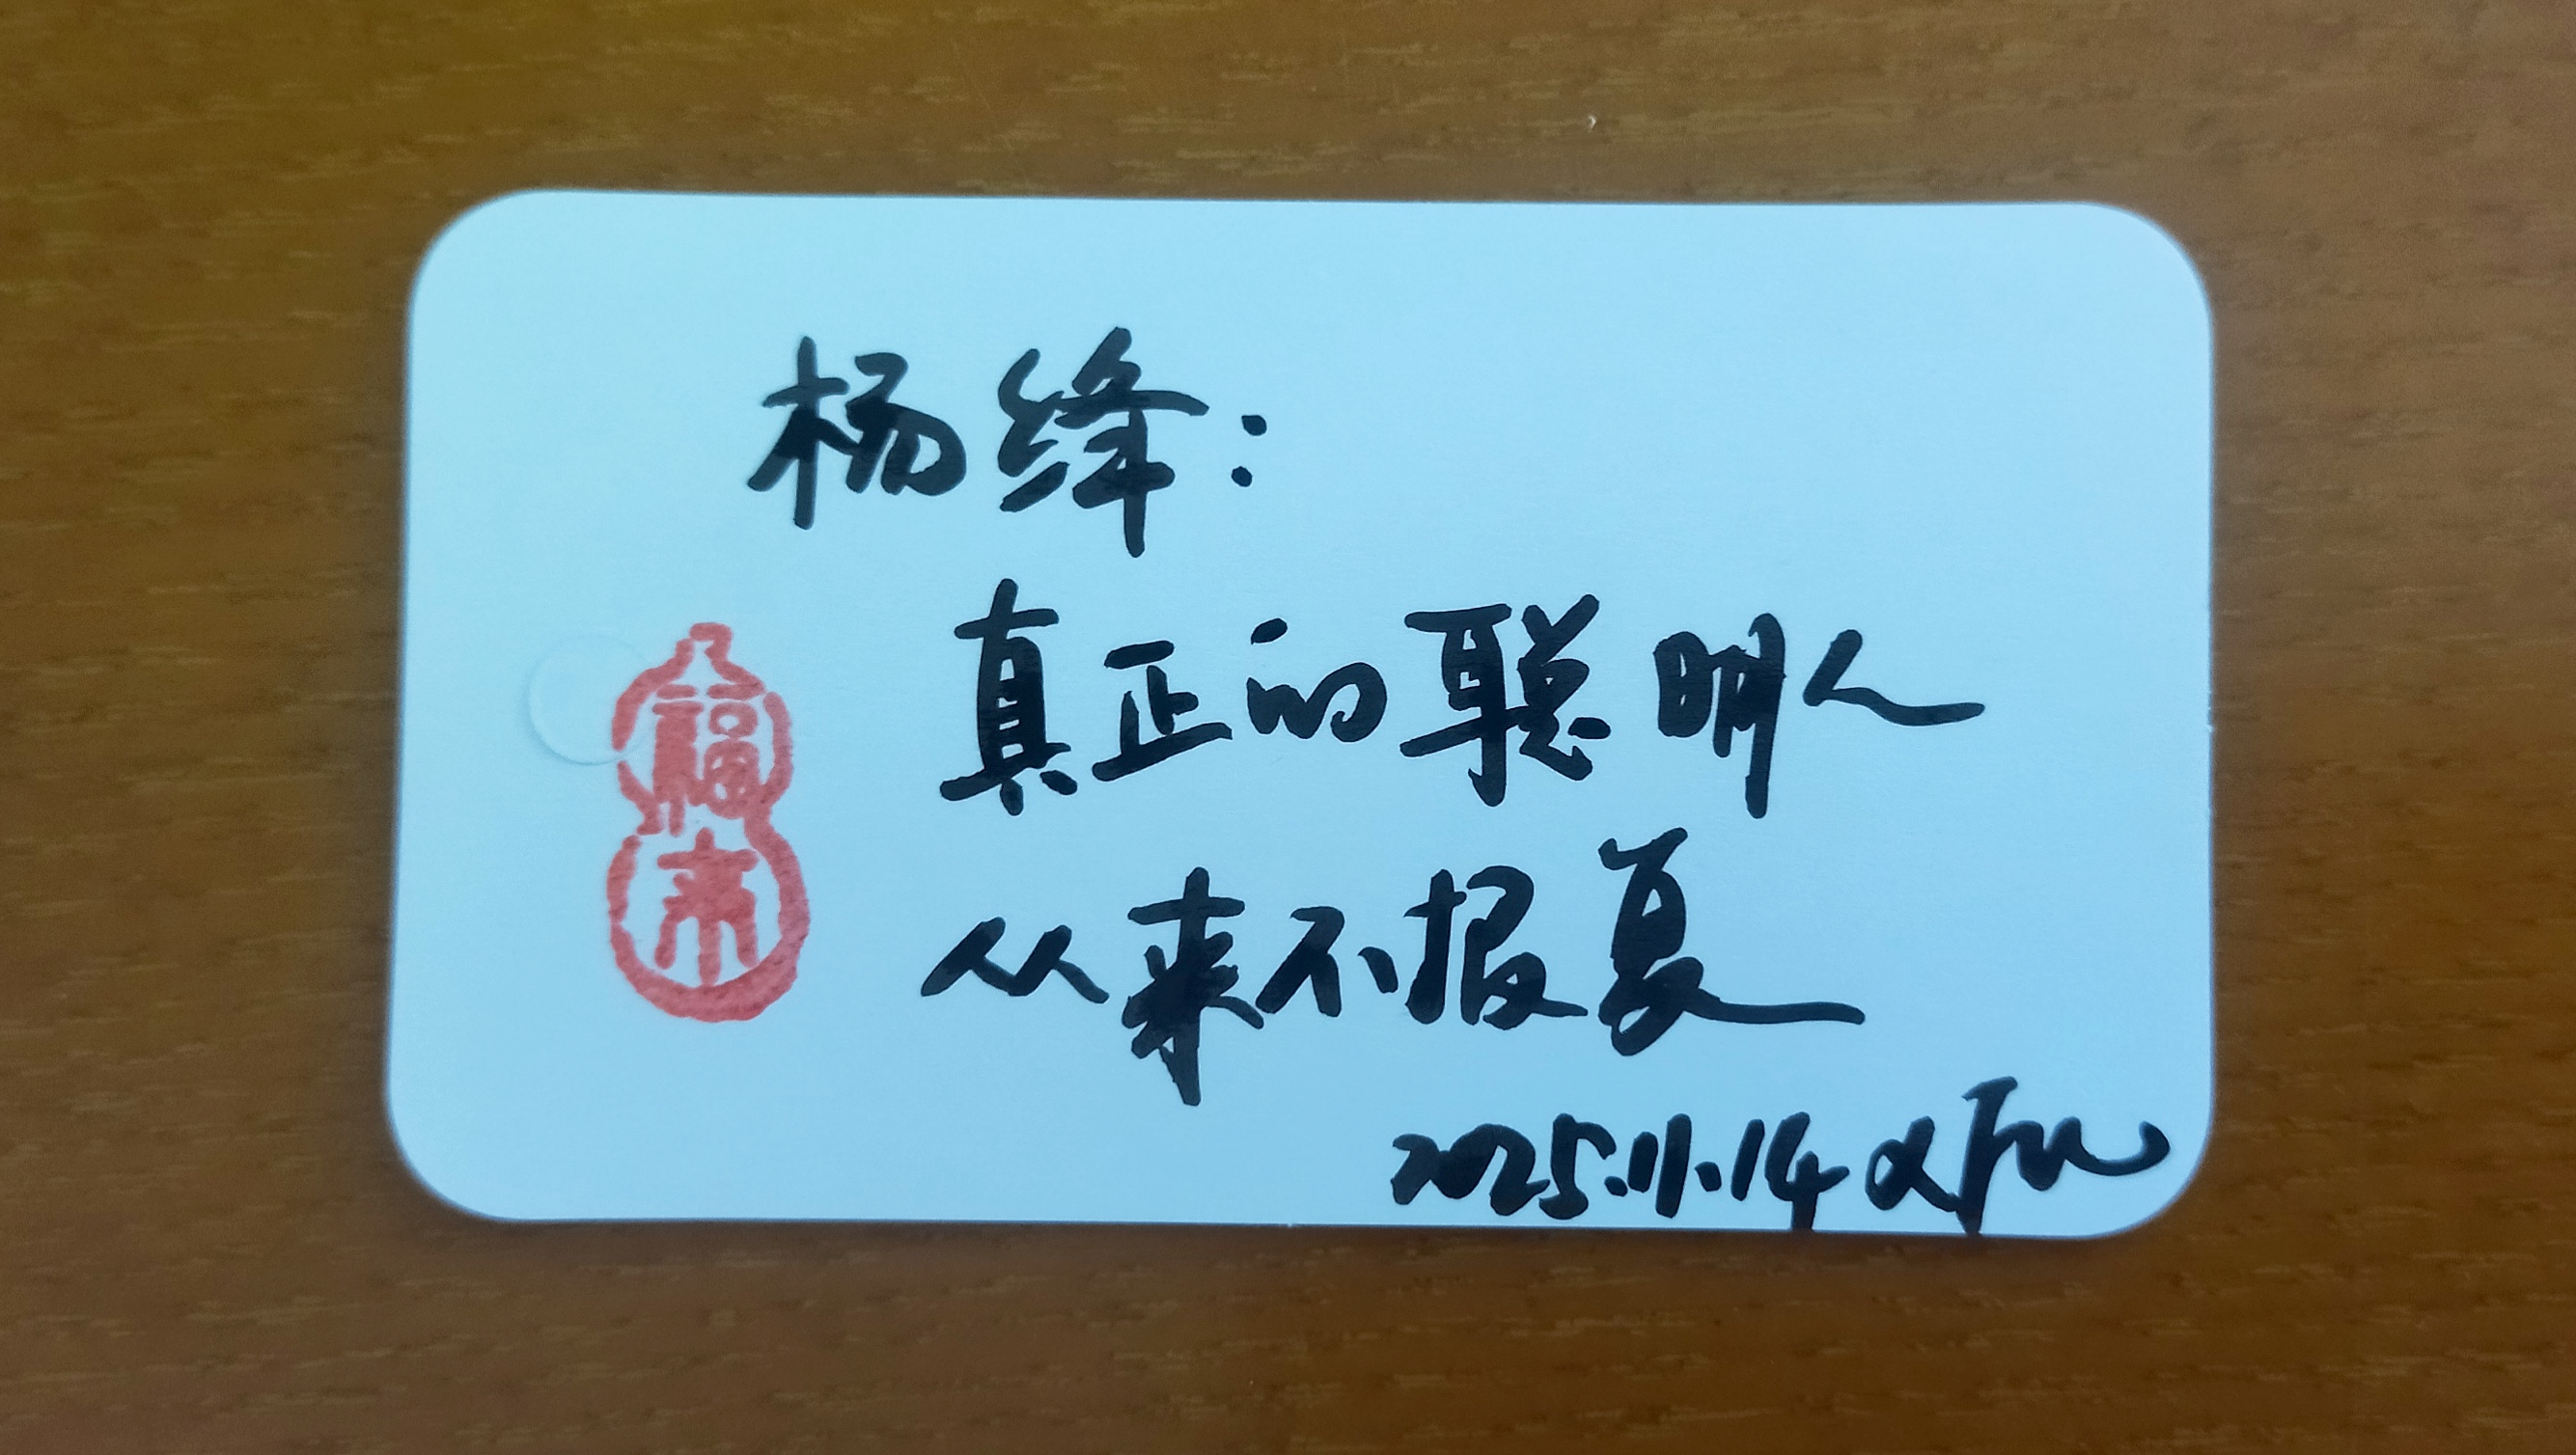 杨绛:
真正的聪明人
从来不报复
2025.11.14
福来